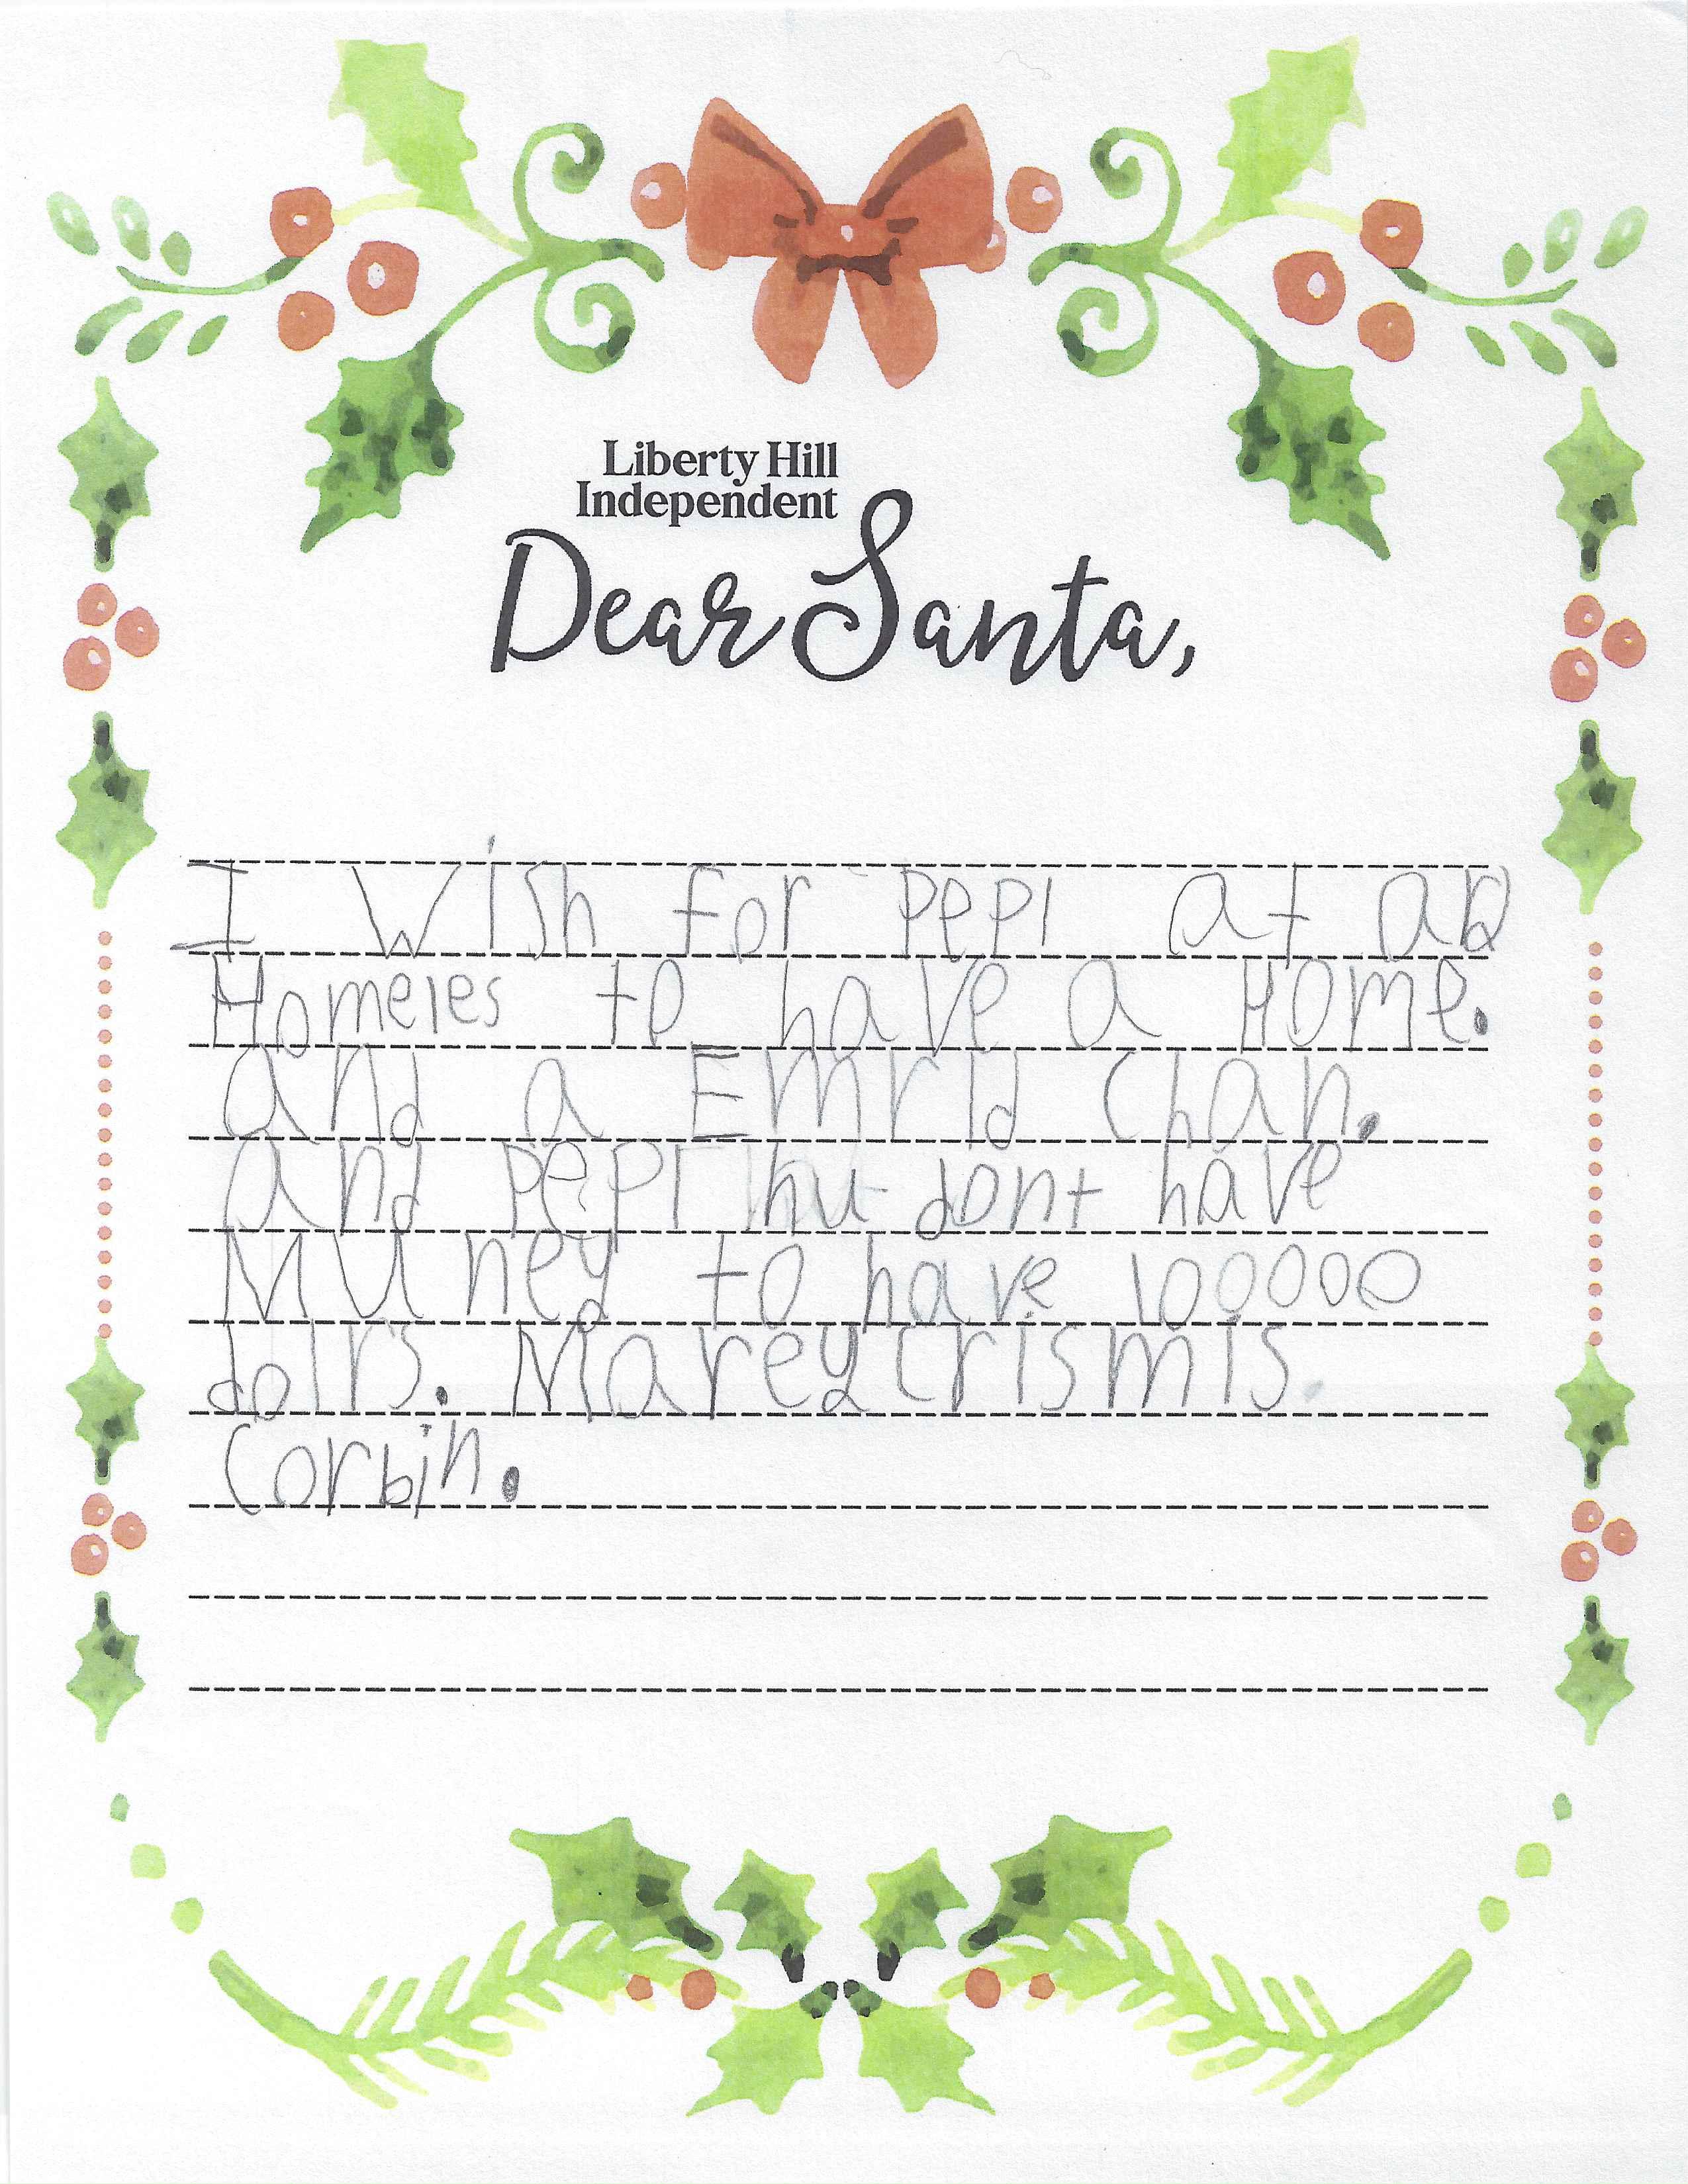 Liberty Hill
Independent
Dear Santa,
I Wish for PePl at ab
Homeles to have a Home.
and a Emrld Chan.
and PePl hu dont have
MUney to have 100000
dolrs. Marey Crismis.
Corbin.